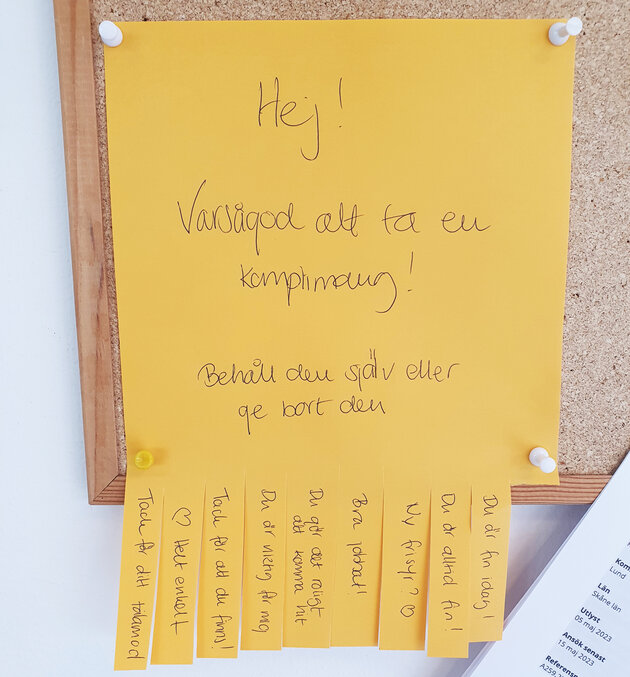 Hej!
Varsågod att ta en
komplimang!
Behåll den själv eller
ge bort den
Tack för ditt tålamod
♡ Helt enkelt
Tack för att du finns!
Du är viktig för mig
Du gör det roligt
att komma hit
Bra jobbat!
Ny frisyr? ♡
Du är alltid fin!
Du är fin idag!
Kom
Lund
Län
Skåne län
Utlyst
05 maj 2023
Ansök senast
15 maj 2023
Referensn
A259.2